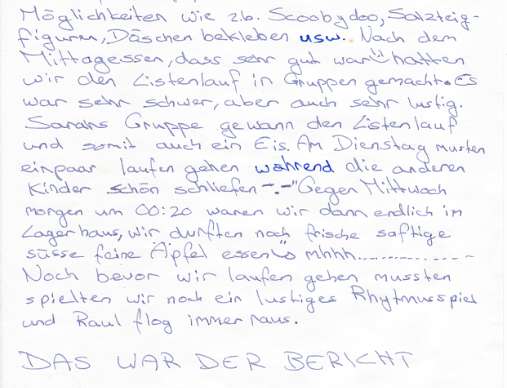 Möglichkeiten wie z.b. Scoobydoo, Salzteig-
figuren, Däschen bekleben usw. Nach dem
Mittagessen, dass sehr gut war hatten
wir den Listenlauf in Gruppen gemacht. Es
war sehr schwer, aber auch sehr lustig.
Sarahs Gruppe gewann den Listenlauf
und somit auch ein Eis. Am Dienstag musten
einpaar laufen gehen während die anderen
Kinder schön schliefen -.-" Gegen Mittwoch
morgen um 00:20 waren wir dann endlich im
Lagerhaus, wir durften noch frische saftige
süsse feine Äpfel essen mhhh..............
Noch bevor wir laufen gehen mussten
spielten wir noch ein lustiges Rhytmusspiel
und Raul flog immer raus.
DAS WAR DER BERICHT